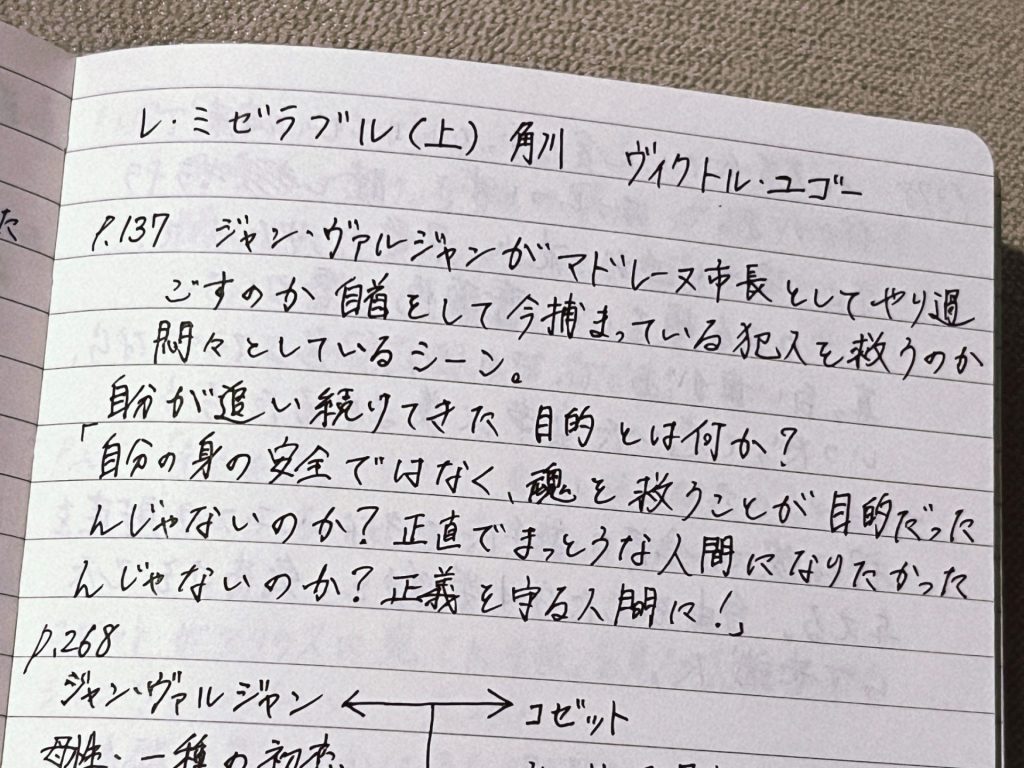 レ・ミゼラブル(上) 角川 ヴィクトル・ユゴー
P.137 ジャン・ヴァルジャンがマドレーヌ市長としてやり過
ごすのか自首をして今捕まっている犯人を救うのか
悶々としているシーン。
自分が追い続けてきた目的とは何か?
「自分の身の安全ではなく、魂を救うことが目的だった
んじゃないのか?正直でまっとうな人間になりたかった
んじゃないのか?正義を守る人間に!」
P.268
ジャン・ヴァルジャン ←→ コゼット
母性・一種の初恋、
た